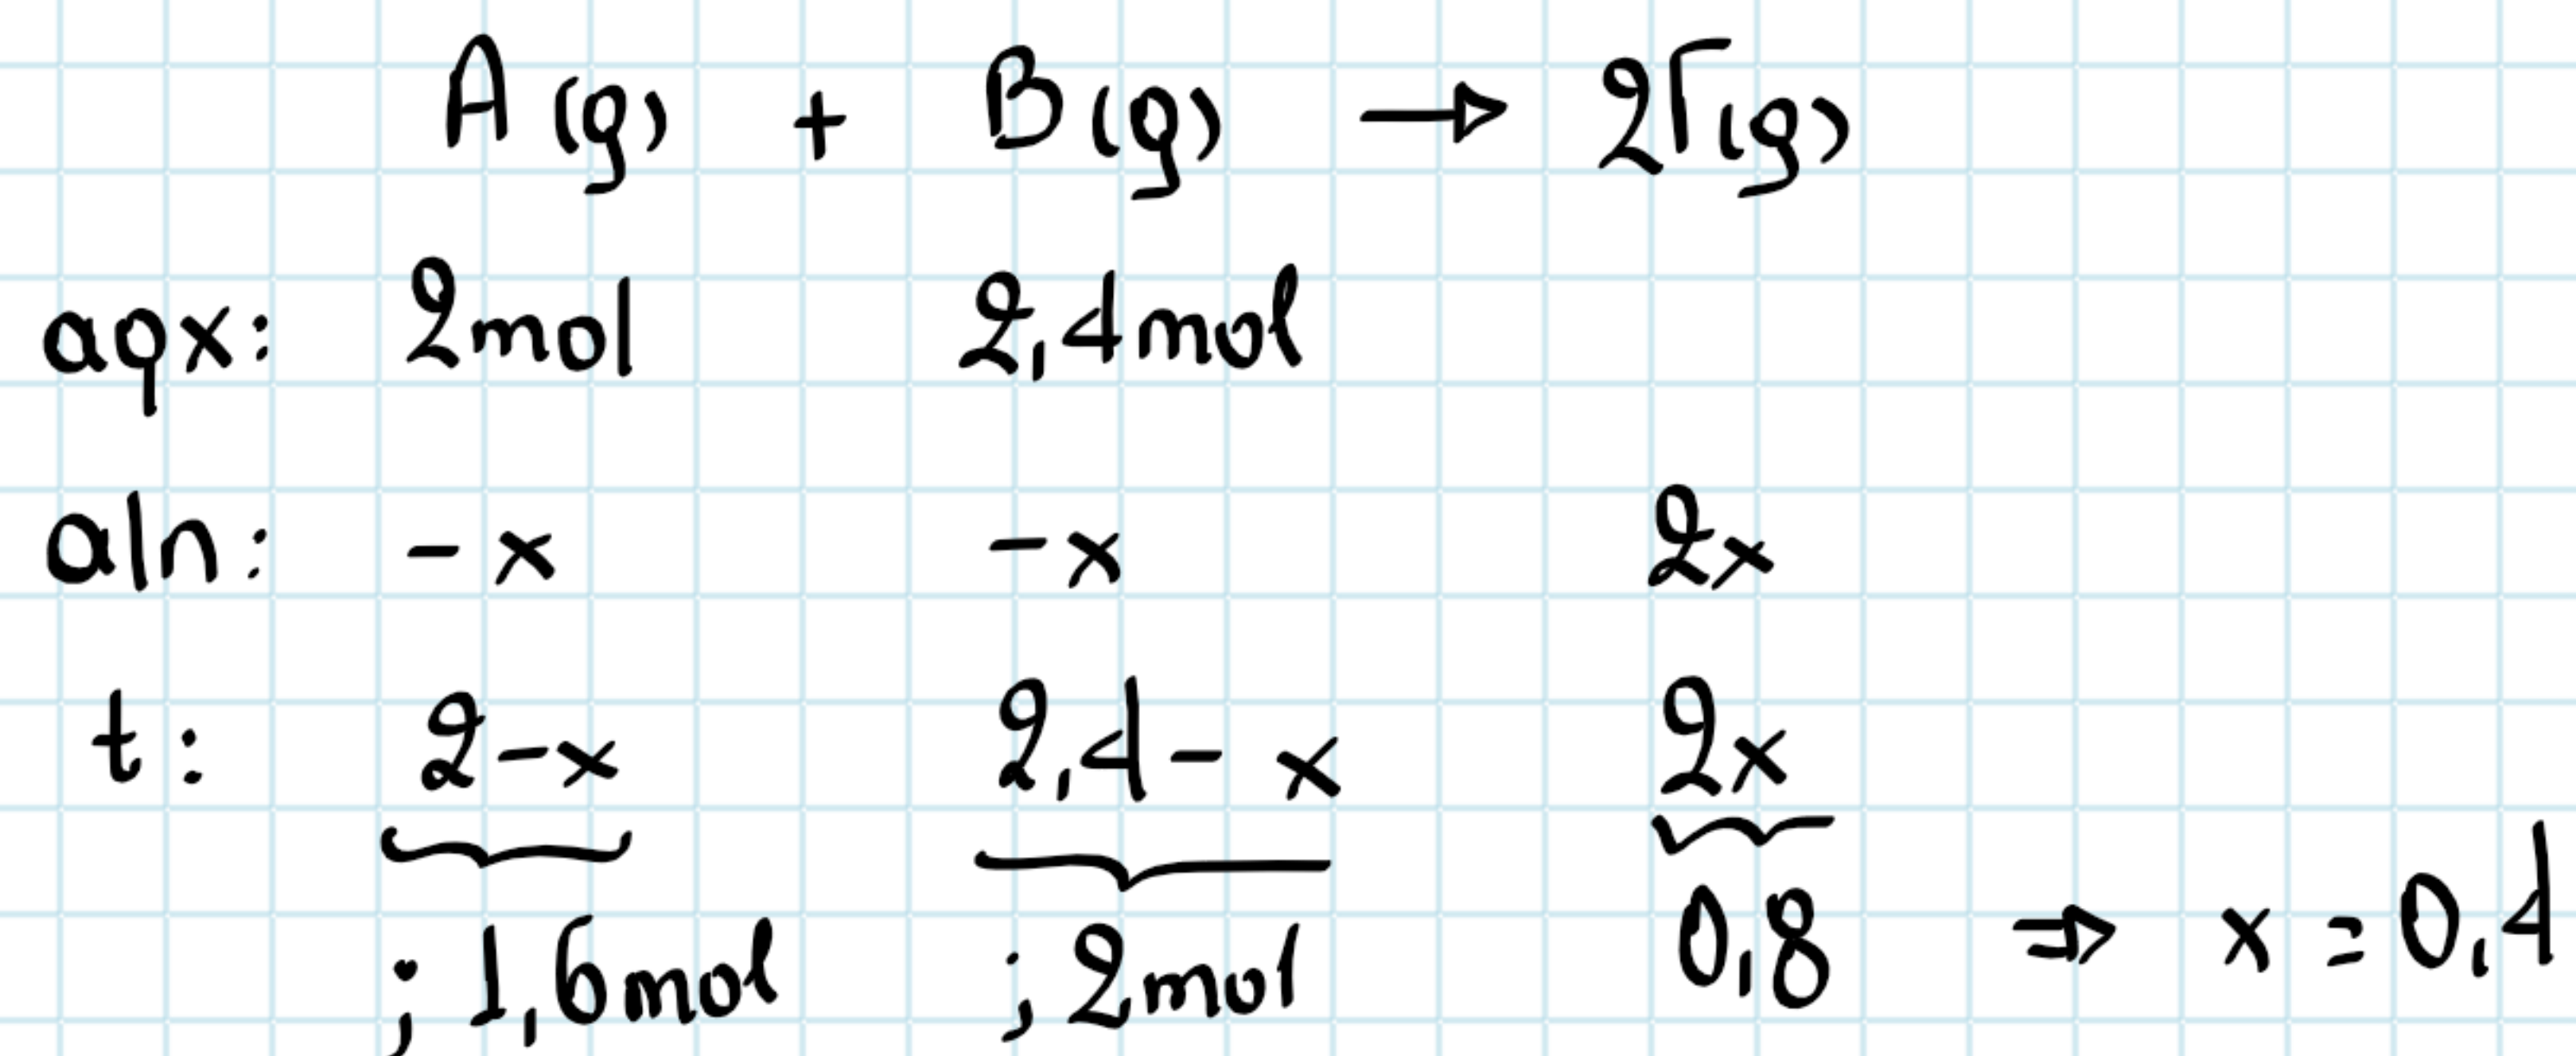 A(g) + B(g) → 2Γ(g)
αρχ: 2mol 2,4mol
αλη: -x -x 2x
t: 2-x 2,4-x 2x
; 1,6mol ; 2mol 0,8 ⇒ x = 0,4